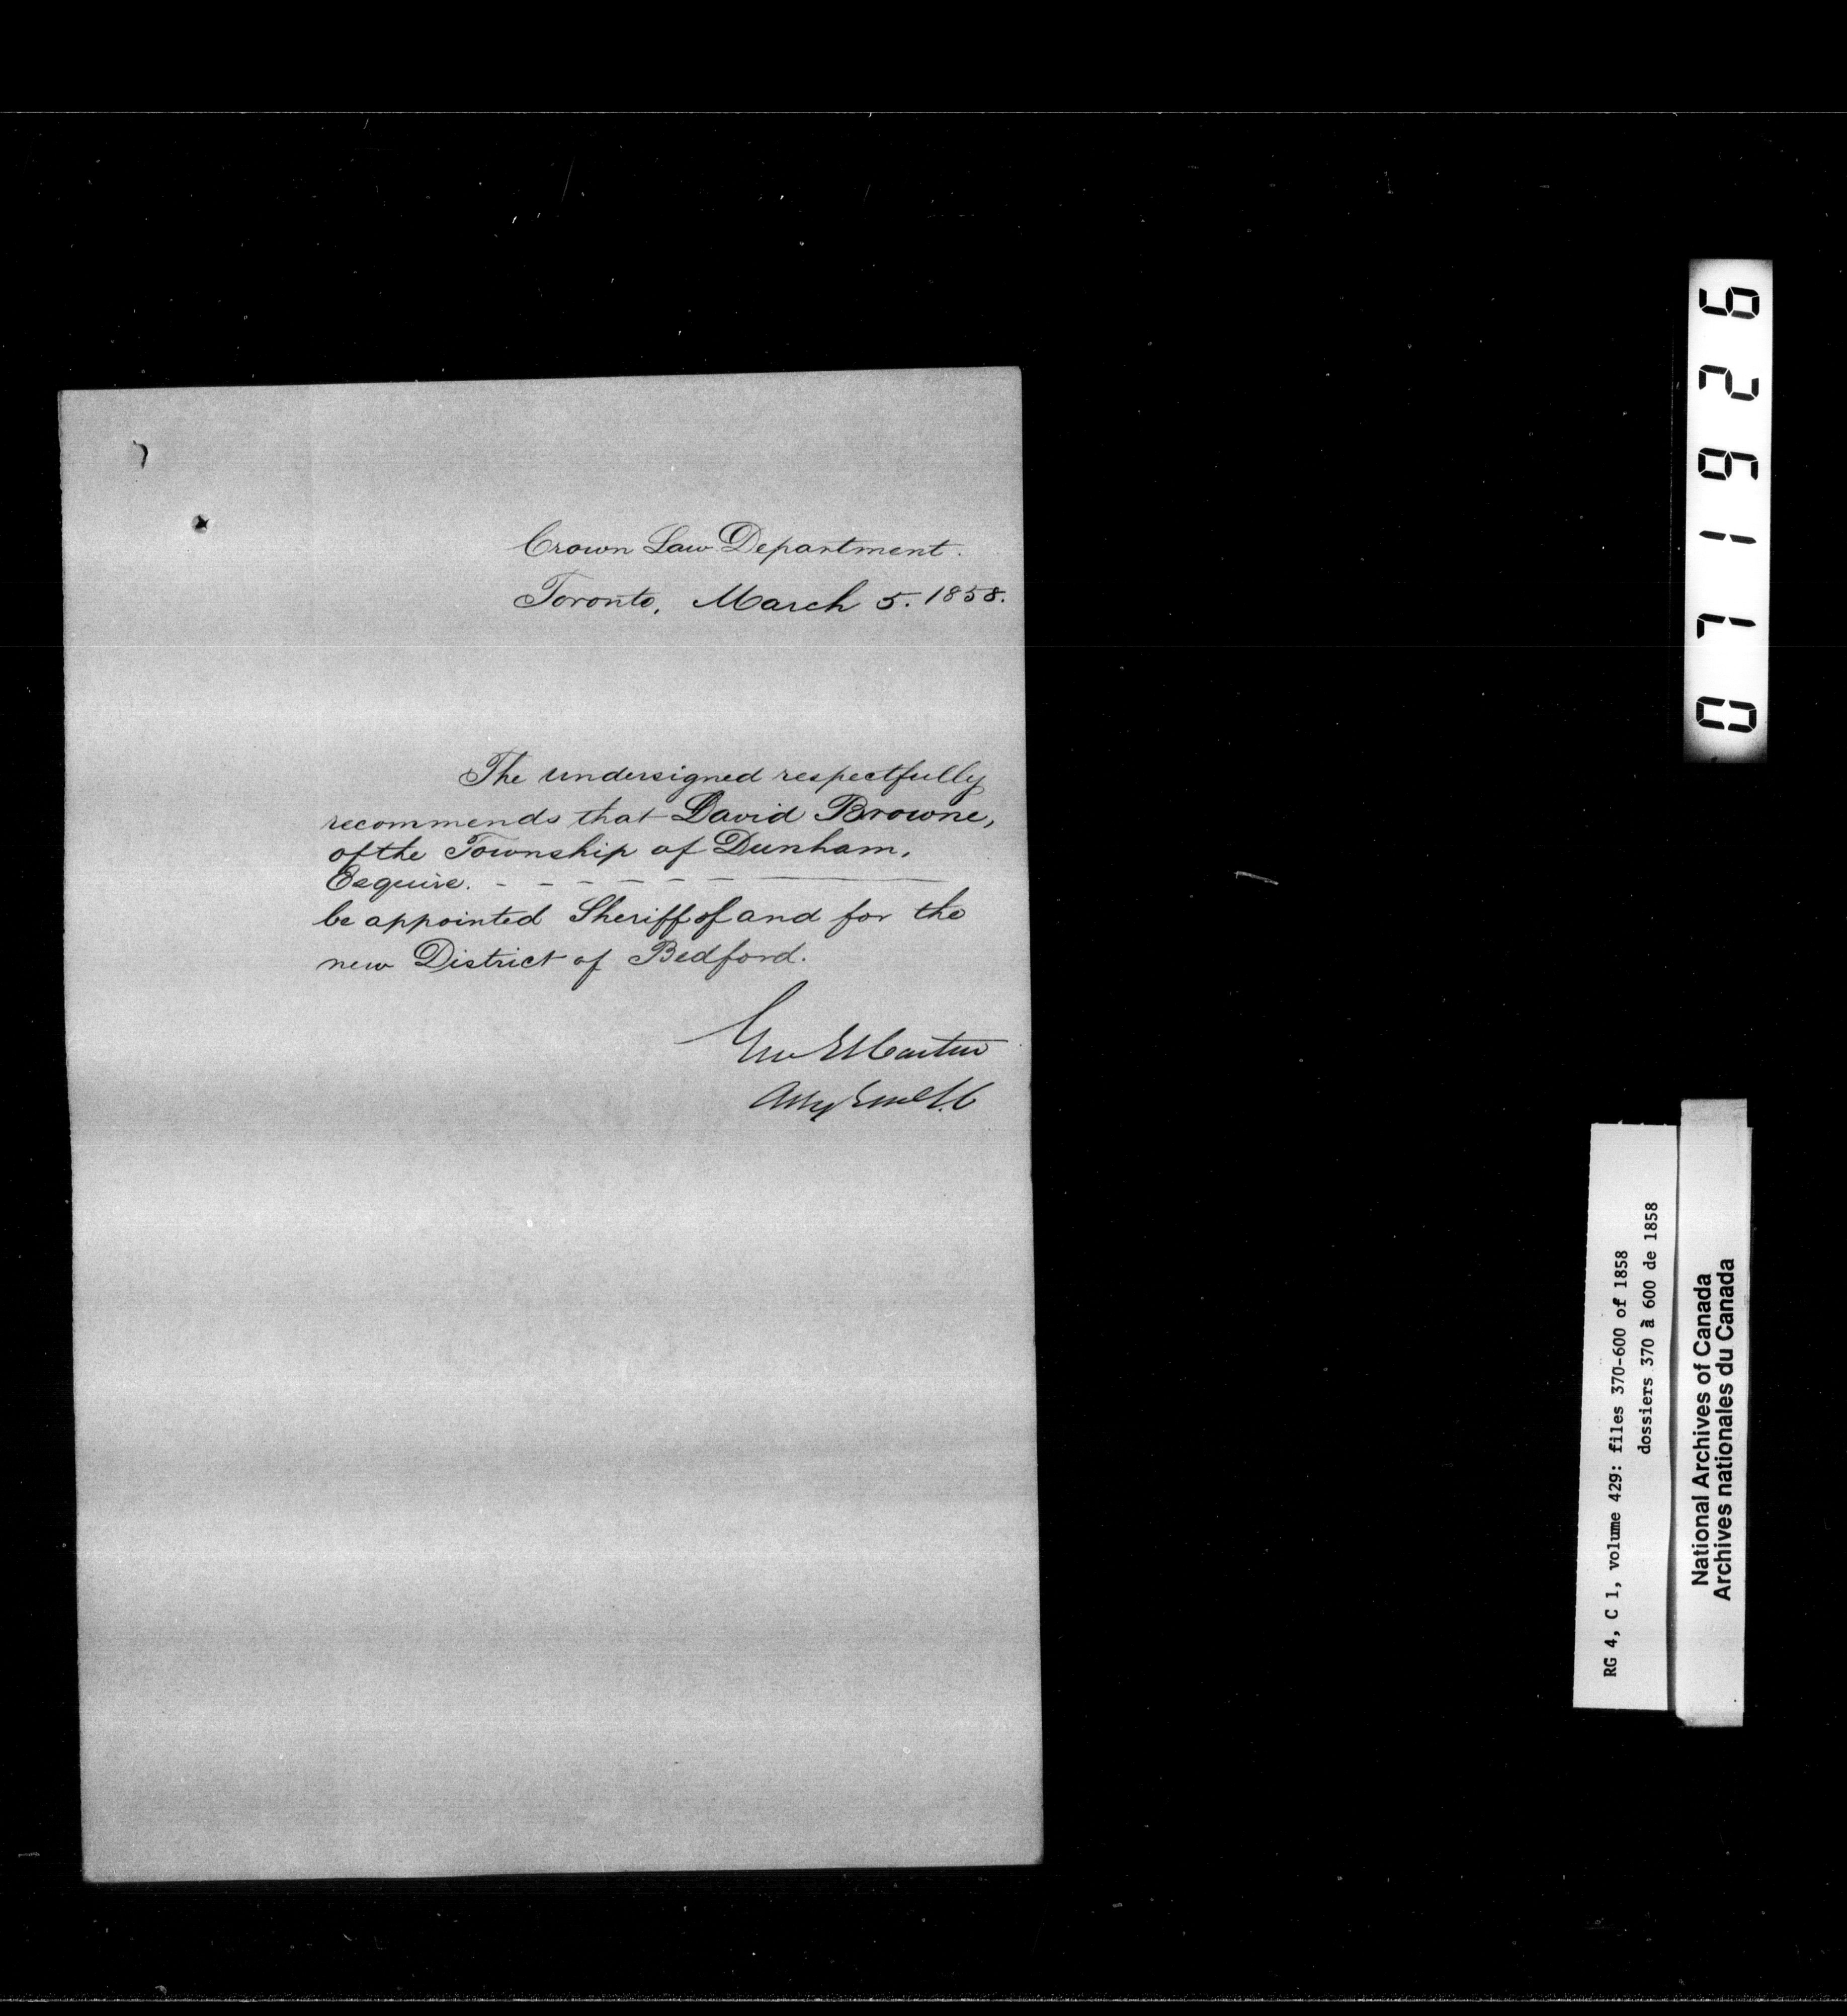 Crown Law Department.
Toronto, March 5. 1858.
The undersigned respectfully
recommends that David Browne,
of the Township of Dunham,
Esquire. - - - - - -
be appointed Sheriff of and for the
new District of Bedford.
Geo E Cartier
Atty Genl L.C
071926
RG 4, C 1, volume 429: files 370-600 of 1858
dossiers 370 à 600 de 1858
National Archives of Canada
Archives nationales du Canada